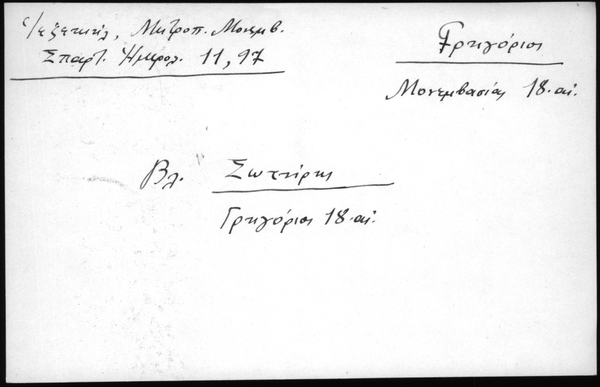 Ἰεζεκιήλ, Μητροπ. Μονεμβ.
Σπαρτ. Ἡμερολ. 11, 97
Γρηγόριος
Μονεμβασίας 18. αἰ.
Βλ. Σωτήρης
Γρηγόριος 18. αἰ.